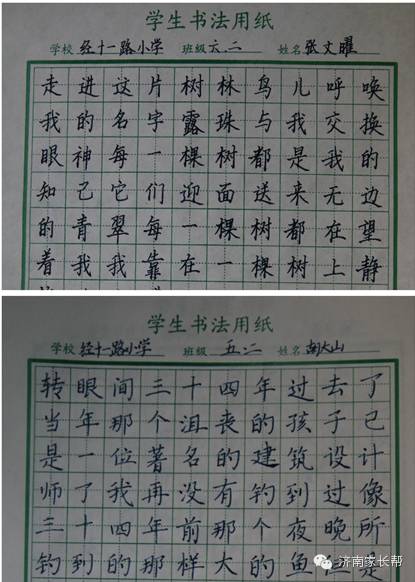 学生书法用纸
学校 经十一路小学 班级 六.二 姓名 张文曜
走进这片树林鸟儿呼唤
我的名字露珠与我交换
眼神每一棵树都是我的
知己它们迎面送来无边
的青翠每一棵树都在望
着我我靠在一棵树上静
学生书法用纸
学校 经十一路小学 班级 五.二 姓名 大山
转眼间三十四年过去了
当年那个沮丧的孩子已
是一位著名的建筑设计
师了我再没有钓到过像
三十四年前那个夜晚所
钓到的那样大的鱼
济南家长帮